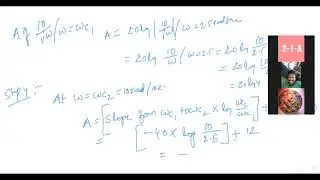 A of 10/jω | ω = ωc1 A = 20 log | 10/jω | ω = 2.5 rad/sec
= 20 log 10/ω | ω = 2.5 = 20 log 10/2.5
= 20 log 4
Step 4:- At ω = ωc2 = 10 rad/sec
A = [Slope from ωc1 to ωc2 × log ωc2/ωc1] +
= [-40 × log 10/2.5] + 12
= -
2-1-A